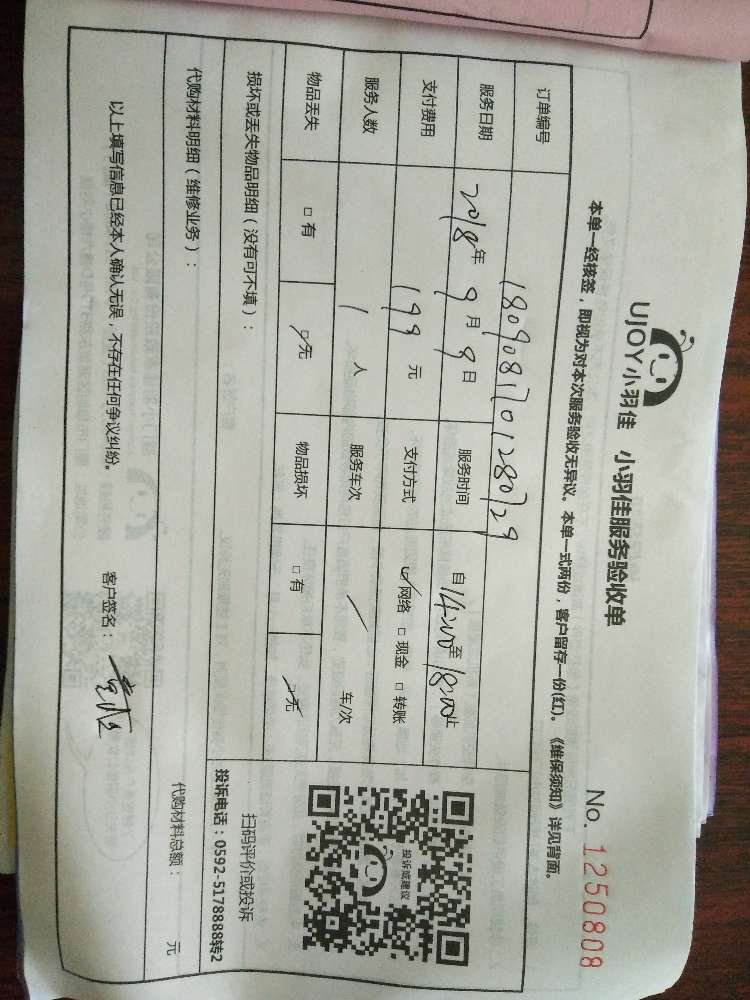 UJOY小羽佳 小羽佳服务验收单
No. 1250808
本单一经核签，即视为对本次服务验收无异议。本单一式两份，客户留存一份(红)。《维保须知》详见背面。
订单编号 1809081701280729
服务日期 2018年9月9日 服务时间 自14:00至18:00止
支付费用 199元 支付方式 ☑网络 □现金 □转账
服务人数 1人 服务车次 / 车/次
物品丢失 □有 ☑无 物品损坏 □有 ☑无
投诉或建议
扫码评价或投诉
投诉电话：0592-5178888转2
损坏或丢失物品明细（没有可不填）：
代购材料明细（维修业务）：
代购材料总额： 元
以上填写信息已经本人确认无误，不存在任何争议纠纷。 客户签名：